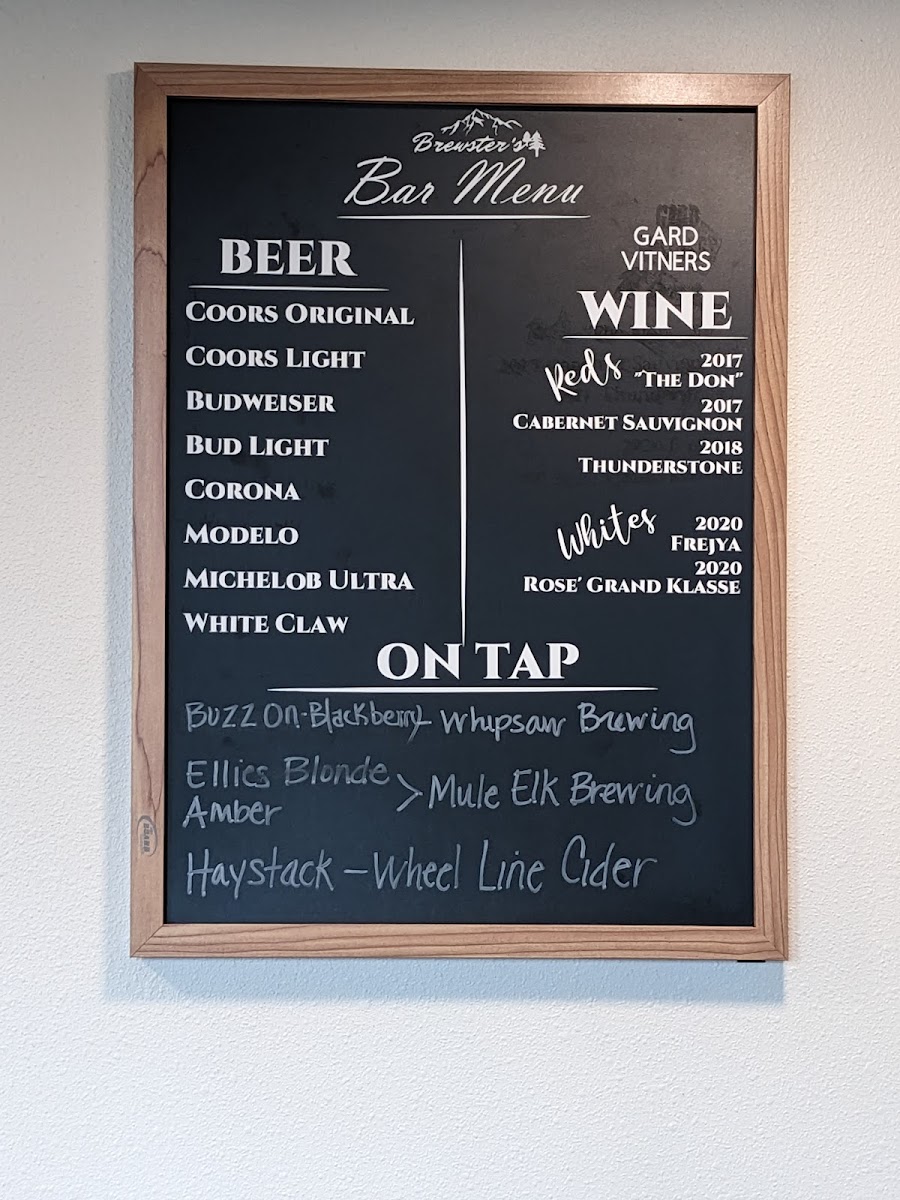 Brewster's
Bar Menu
BEER
COORS ORIGINAL
COORS LIGHT
BUDWEISER
BUD LIGHT
CORONA
MODELO
MICHELOB ULTRA
WHITE CLAW
GARD
VITNERS
WINE
Reds
2017
"THE DON"
2017
CABERNET SAUVIGNON
2018
THUNDERSTONE
Whites
2020
FREJYA
2020
ROSE' GRAND KLASSE
ON TAP
Buzz On-Blackberry- Whipsaw Brewing
Ellies Blonde
Amber > Mule Elk Brewing
Haystack - Wheel Line Cider